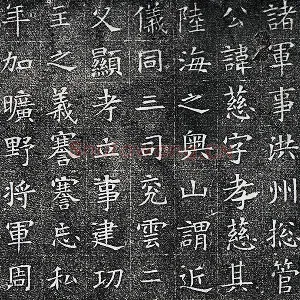 諸軍事洪州揔管
公諱慈字孝慈其
陸海之奥山謂近
儀同三司兖雲二
父顯考立事建功
主之義謇謇忘私
年加曠野将軍周